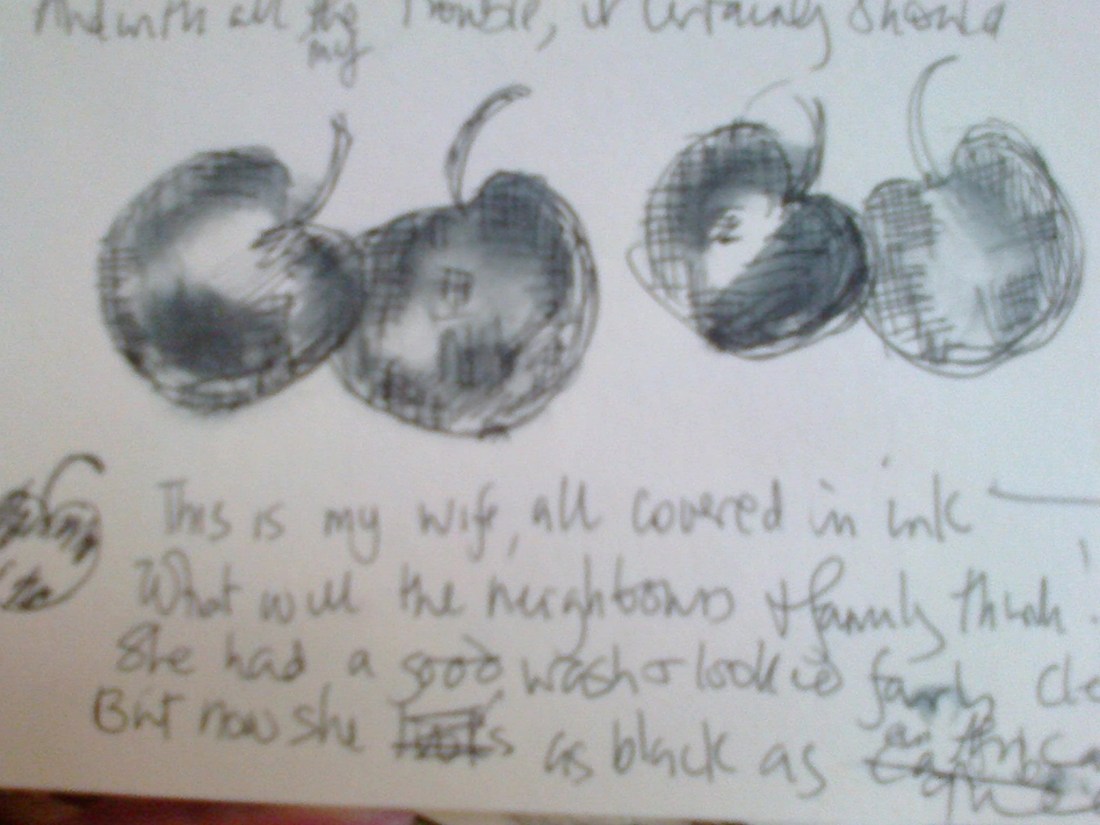 And with all the Trouble, it certainly should
my
This is my wife, all covered in ink
What will the neighbours + family think!
She had a good wash + looked fairly
But now she as black as an